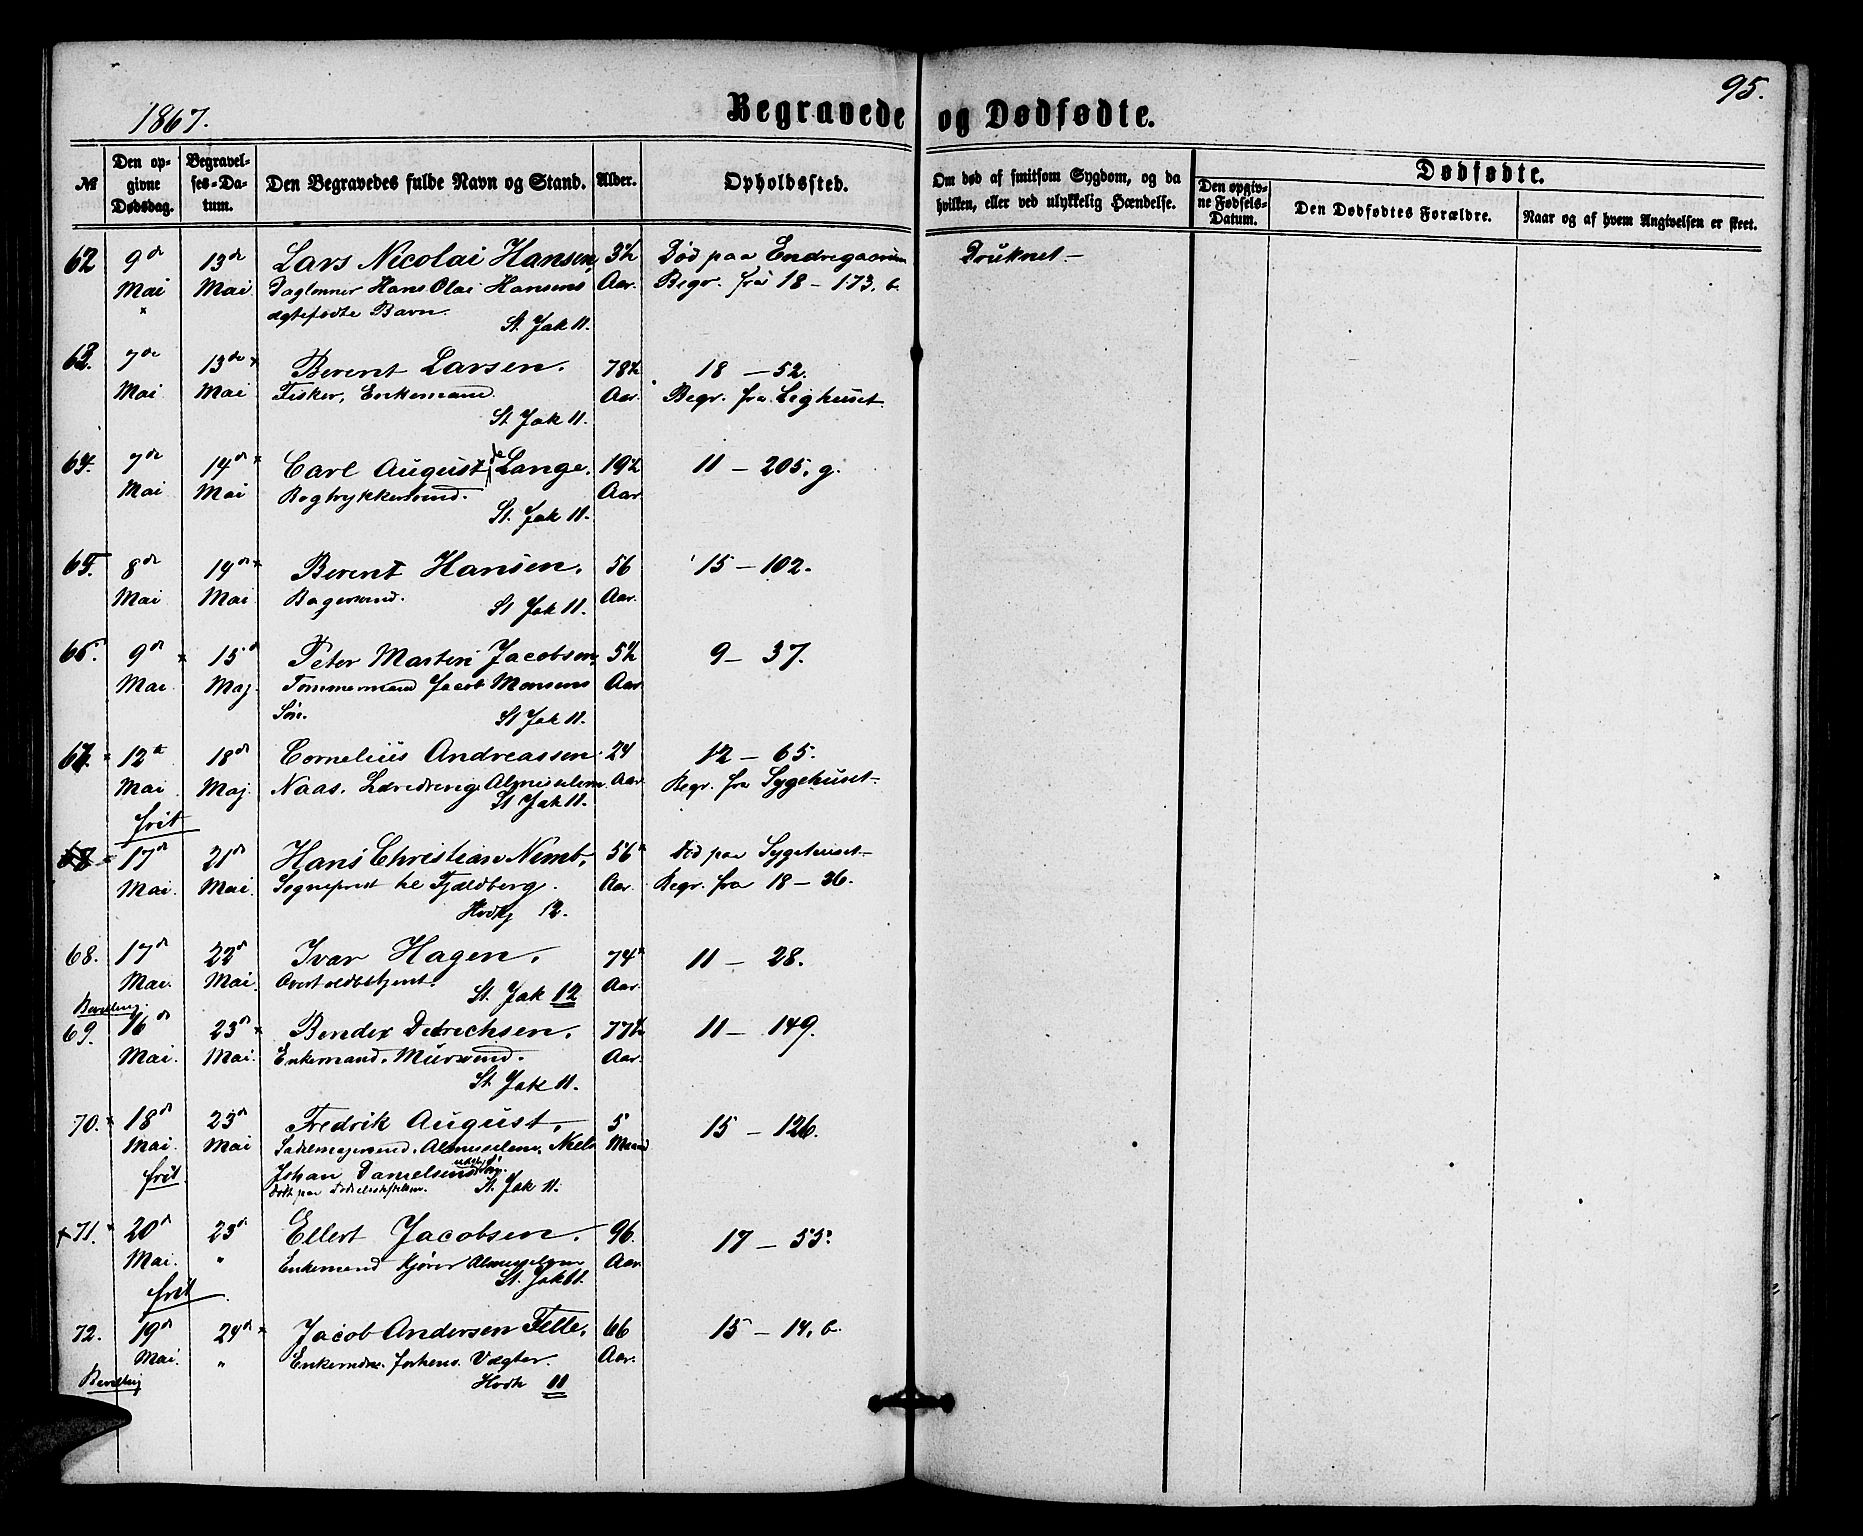 1867.
Begravede og Dødfødte.
95.
№
Den opgivne Dødsdag.
Begravelses-Datum.
Den Begravedes fulde Navn og Stand.
Alder.
Opholdssted.
Om død af smitsom Sygdom, og da hvilken, eller ved ulykkelig Hændelse.
Dødfødte.
Den opgivne Fødsels-Datum.
Den Dødfødtes Forældre.
Naar og af hvem Angivelsen er skeet.
62 9de 13de Lars Nicolai Hansen, 3½ Død paa Endregaarden Druknet
Mai Mai Daglønner Hans Olai Hansens Aar. Begr. fra 18 – 173. b.
ægtefødte Barn.
St. Jak 11.
63. 7de 13de Berent Larsen. 78½ 18 – 52.
Mai Mai Fisker, Enkemand Aar. Begr. fra Lighuset
St Jak 11.
64. 7de 14de Carl August de Lange. 19½ 11 – 205. g.
Mai Mai Bogtrykkersvend. Aar.
St. Jak 11.
65. 8de 14de Berent Hansen. 56 15 – 102.
Mai Mai Bagersvend. Aar.
St Jak 11.
66. 9de 15de Peter Martin Jacobsen, 5½ 9 – 37.
Mai Maj. Tømmermand Jacob Monsens Aar
Søn. St Jak 11.
67. 12te 18de Cornelius Andreassen 24 12 – 65.
Mai Maj. Naas. Læredreng, Almisselem Aar. Begr. fra Sygehuset
St Jak 11.
frit
68 17de 21de Hans Christian Nimb, 56 Død paa Sygehuset
Mai. Mai. Sogneprest til Fjældberg. Aar. Begr. fra 18 – 36.
Hvdkj 12.
68. 17de 22de Ivar Hagen. 74 11 – 28.
Mai. Mai. Overtoldbetjent. Aar.
St. Jak 12
Bevilling.
69. 16de 23de Bendix Detrichsen. 77½ 11 – 149.
Mai. Mai. Enkemand. Mursvend. Aar.
St. Jak 11.
70. 18de 23de Fredrik August, 5 15 – 126.
Mai. Mai Sadelmagersvend, Almisselem, Niels Maaned
frit. Johan Danielsens
St. Jak 11.
71. 20de 23de Ellert Jacobsen. 96. 17 – 55.
Mai. " Enkemand Kjører Almisselem Aar
St. Jak 11.
frit
72. 19de 24de Jacob Andersen Telle, 66 15 – 14. b.
Mai. " Vægter. Aar.
Bevilling Hvdk 11